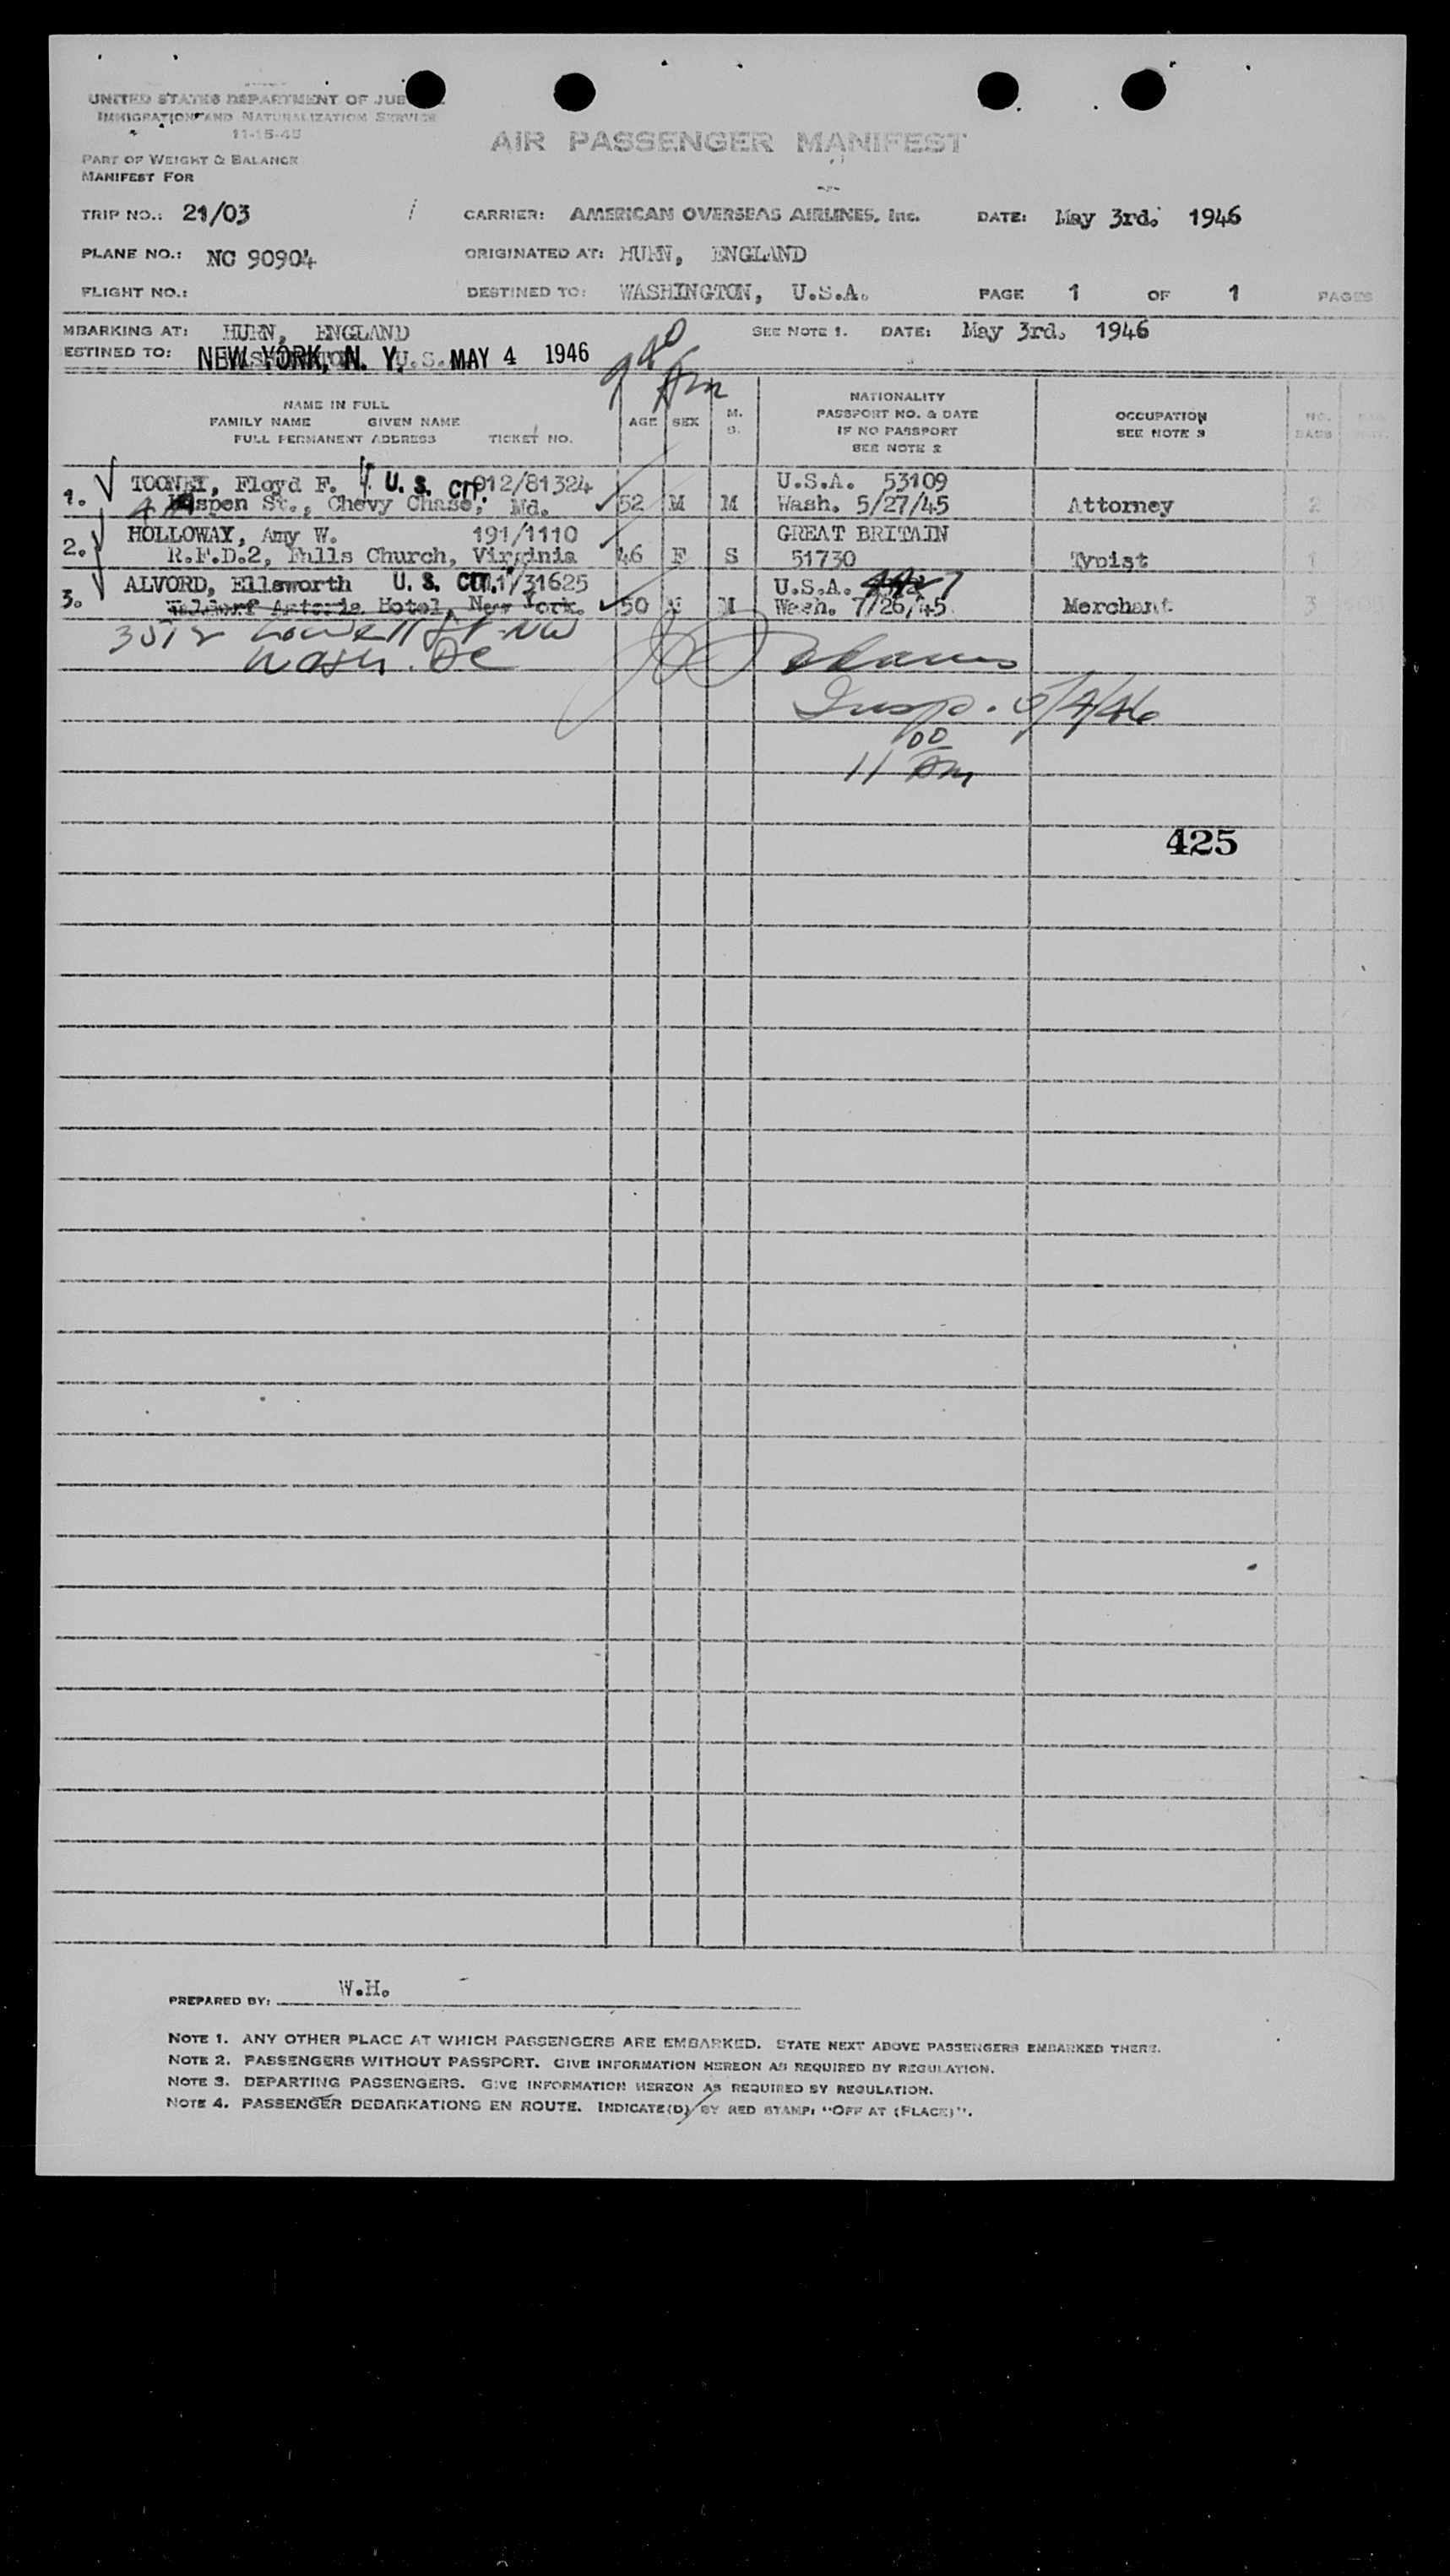 UNITED STATES DEPARTMENT OF JUS
IMMIGRATION AND NATURALIZATION SERVICE
11-15-45
AIR PASSENGER MANIFEST
PART OF WEIGHT & BALANCE
MANIFEST FOR
TRIP NO.: 21/03 CARRIER: AMERICAN OVERSEAS AIRLINES, Inc. DATE: May 3rd. 1946
PLANE NO.: NC 90904 ORIGINATED AT: HURN, ENGLAND
FLIGHT NO.: DESTINED TO: WASHINGTON, U.S.A. PAGE 1 OF 1 PAGES
MBARKING AT: HURN, ENGLAND SEE NOTE 1. DATE: May 3rd. 1946
ESTINED TO: NEW YORK, N. Y. U.S. MAY 4 1946 9 40 Am
NAME IN FULL
FAMILY NAME GIVEN NAME
FULL PERMANENT ADDRESS TICKET NO.
AGE SEX M. S.
NATIONALITY
PASSPORT NO. & DATE
IF NO PASSPORT
SEE NOTE 2
OCCUPATION
SEE NOTE 3
NO. BAGS
TOONEY, Floyd F. U. S. CIT. 912/81324 U.S.A. 53109
1. Aspen St., Chevy Chase, Md. 52 M M Wash. 5/27/45 Attorney 2
HOLLOWAY, Amy W. 191/1110 GREAT BRITAIN
2. R.F.D.2, Falls Church, Virginia 46 F S 51730 Typist 1
ALVORD, Ellsworth U. S. CIT. 1/31625 U.S.A.
3. Waldorf Astoria Hotel, New York. 50 M M Wash. 7/26/45 Merchant 3
3512 Lowell St NW
Wash. DC
Adams
Insp. 5/4/46
11 00 Am
425
PREPARED BY: W.H.
NOTE 1. ANY OTHER PLACE AT WHICH PASSENGERS ARE EMBARKED. STATE NEXT ABOVE PASSENGERS EMBARKED THERE.
NOTE 2. PASSENGERS WITHOUT PASSPORT. GIVE INFORMATION HEREON AS REQUIRED BY REGULATION.
NOTE 3. DEPARTING PASSENGERS. GIVE INFORMATION HEREON AS REQUIRED BY REGULATION.
NOTE 4. PASSENGER DEBARKATIONS EN ROUTE. INDICATE(D) BY RED STAMP: "OFF AT (PLACE)".